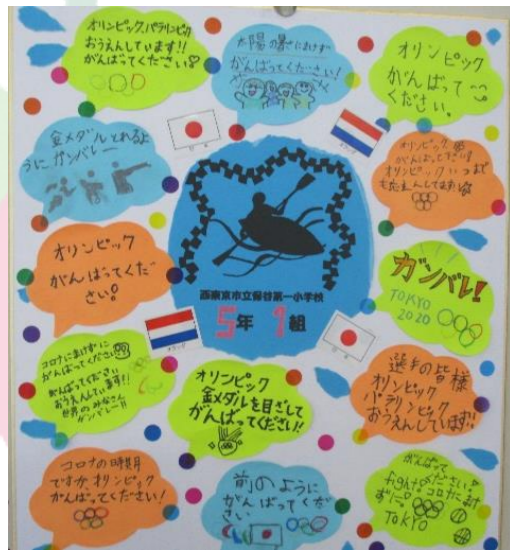 オリンピック、パラリンピック
おうえんしています!!
がんばってください
太陽の暑さにまけず
がんばってください!
オリンピック
がんばって
ください。
金メダルとれるよ
うにガンバレー
オリンピック
がんばってください
オリンピックいつまで
オリンピック
がんばってくだ
さい。
西東京市立保谷第一小学校
5年 1組
ガンバレ!
TOKYO
2020
日本
オランダ
オランダ
日本
コロナにまけずに
がんばってください
がんばってください
おうえんしています!!
世界のみなさん
ガンバレー!!
オリンピック
金メダルを目ざして
がんばってください!!
選手の皆様
オリンピック
パラリンピック
おうえんしています!!
コロナの時期
ですが、オリンピック
がんばってください!
前のように
がんばってくだ
さい
がんばって
fight
ください
コロナにまけ
ずに
TOKYO